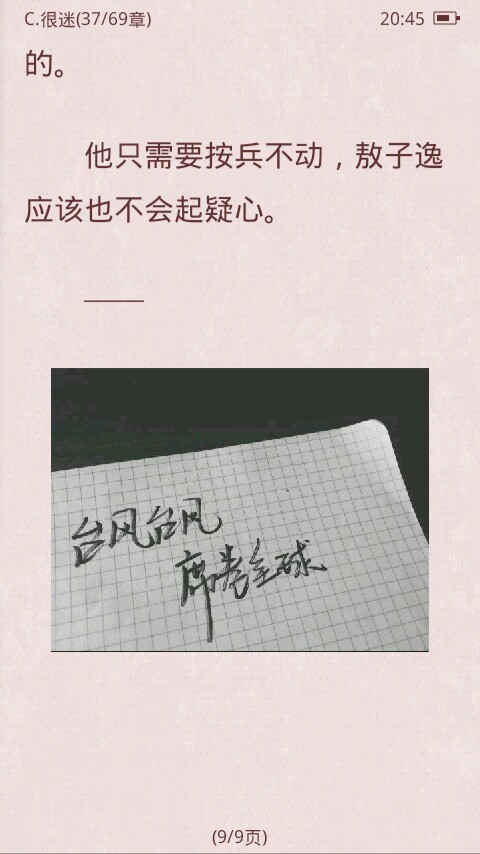 C.很迷(37/69章) 20:45
的。
他只需要按兵不动，敖子逸
应该也不会起疑心。
台风台风
席卷全球
(9/9页)